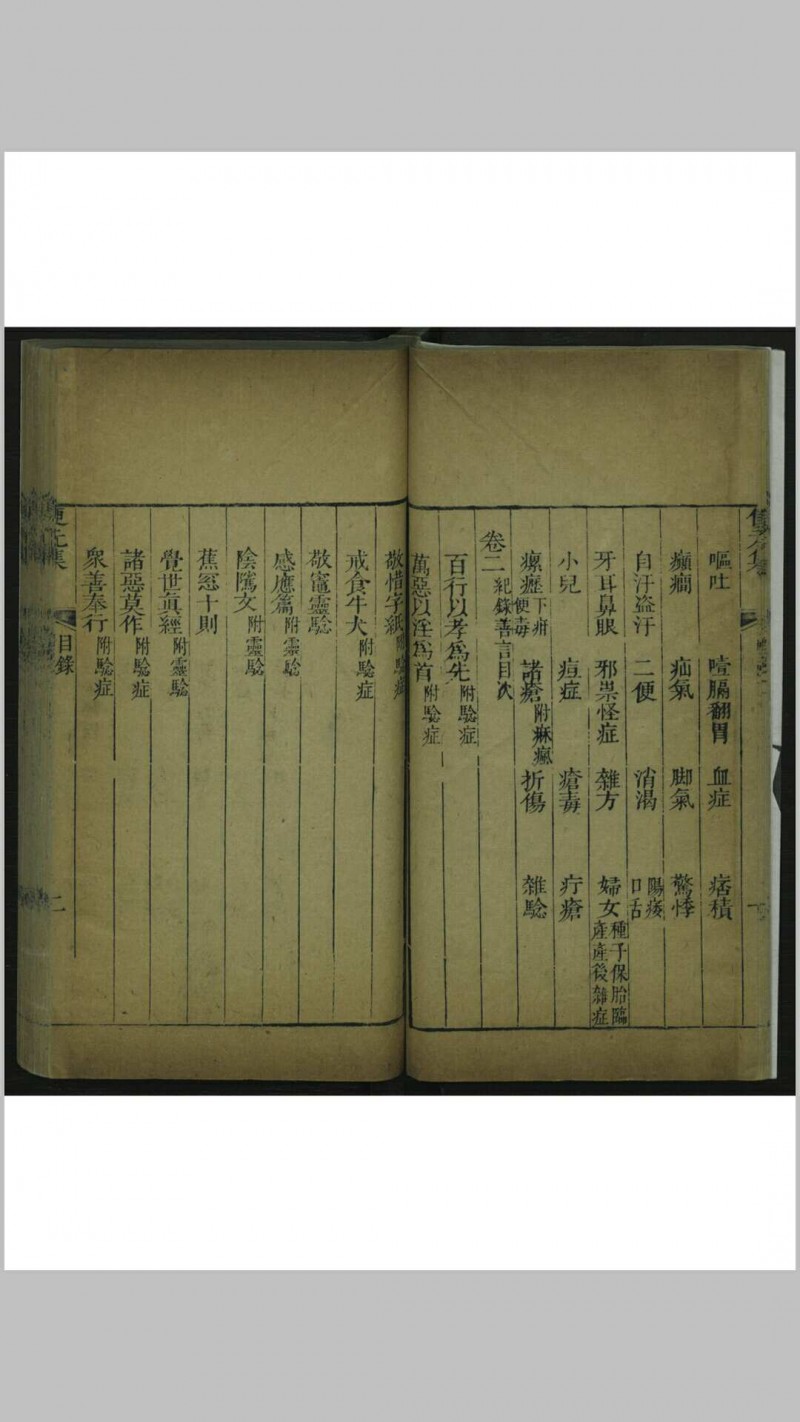 嘔吐 噎膈翻胃 血症 痞積
癲癇 疝氣 脚氣 驚悸
自汗盗汗 二便 消渴 陽痿 口舌
牙耳鼻眼 邪祟怪症 雜方 婦女 種子保胎臨產產後雜症
小兒 痘症 瘡毒 疔瘡
瘰癧 下疳便毒 諸瘡 附痳瘋 折傷 雜騐
卷二 紀錄善言目次
百行以孝爲先 附騐症
萬惡以淫爲首 附騐症
敬惜字紙 附騐症
戒食牛犬 附騐症
敬竈靈騐
感應篇 附靈騐
陰隲文 附靈騐
蕉窓十則
覺世眞經 附靈騐
諸惡莫作 附騐症
衆善奉行 附騐症
目錄
二